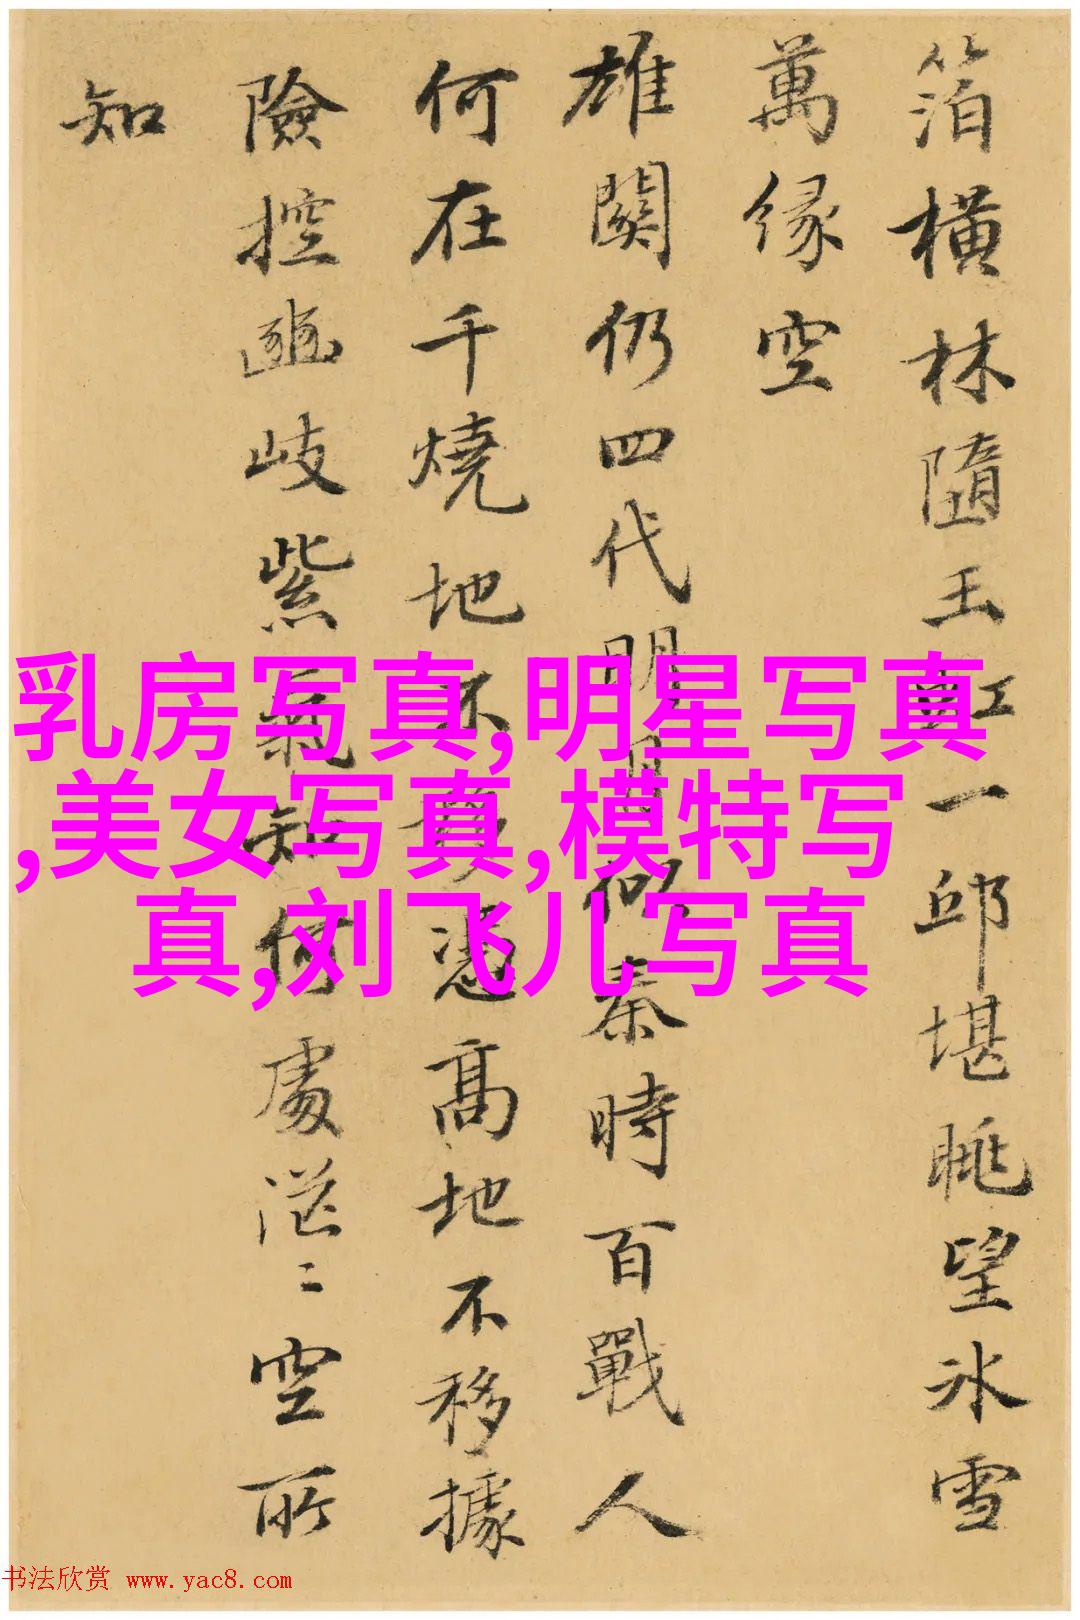 箔橫林隨玉虹一邱堪眺望冰雪
萬緣空
雄關仍四代明月似秦時百戰人
何在千燒地不移據
險控豳岐紫氣知何處茫〻空所
知
乳房写真,明星写真
,美女写真,模特写
真,刘飞儿写真
书法欣赏 www.yac8.com